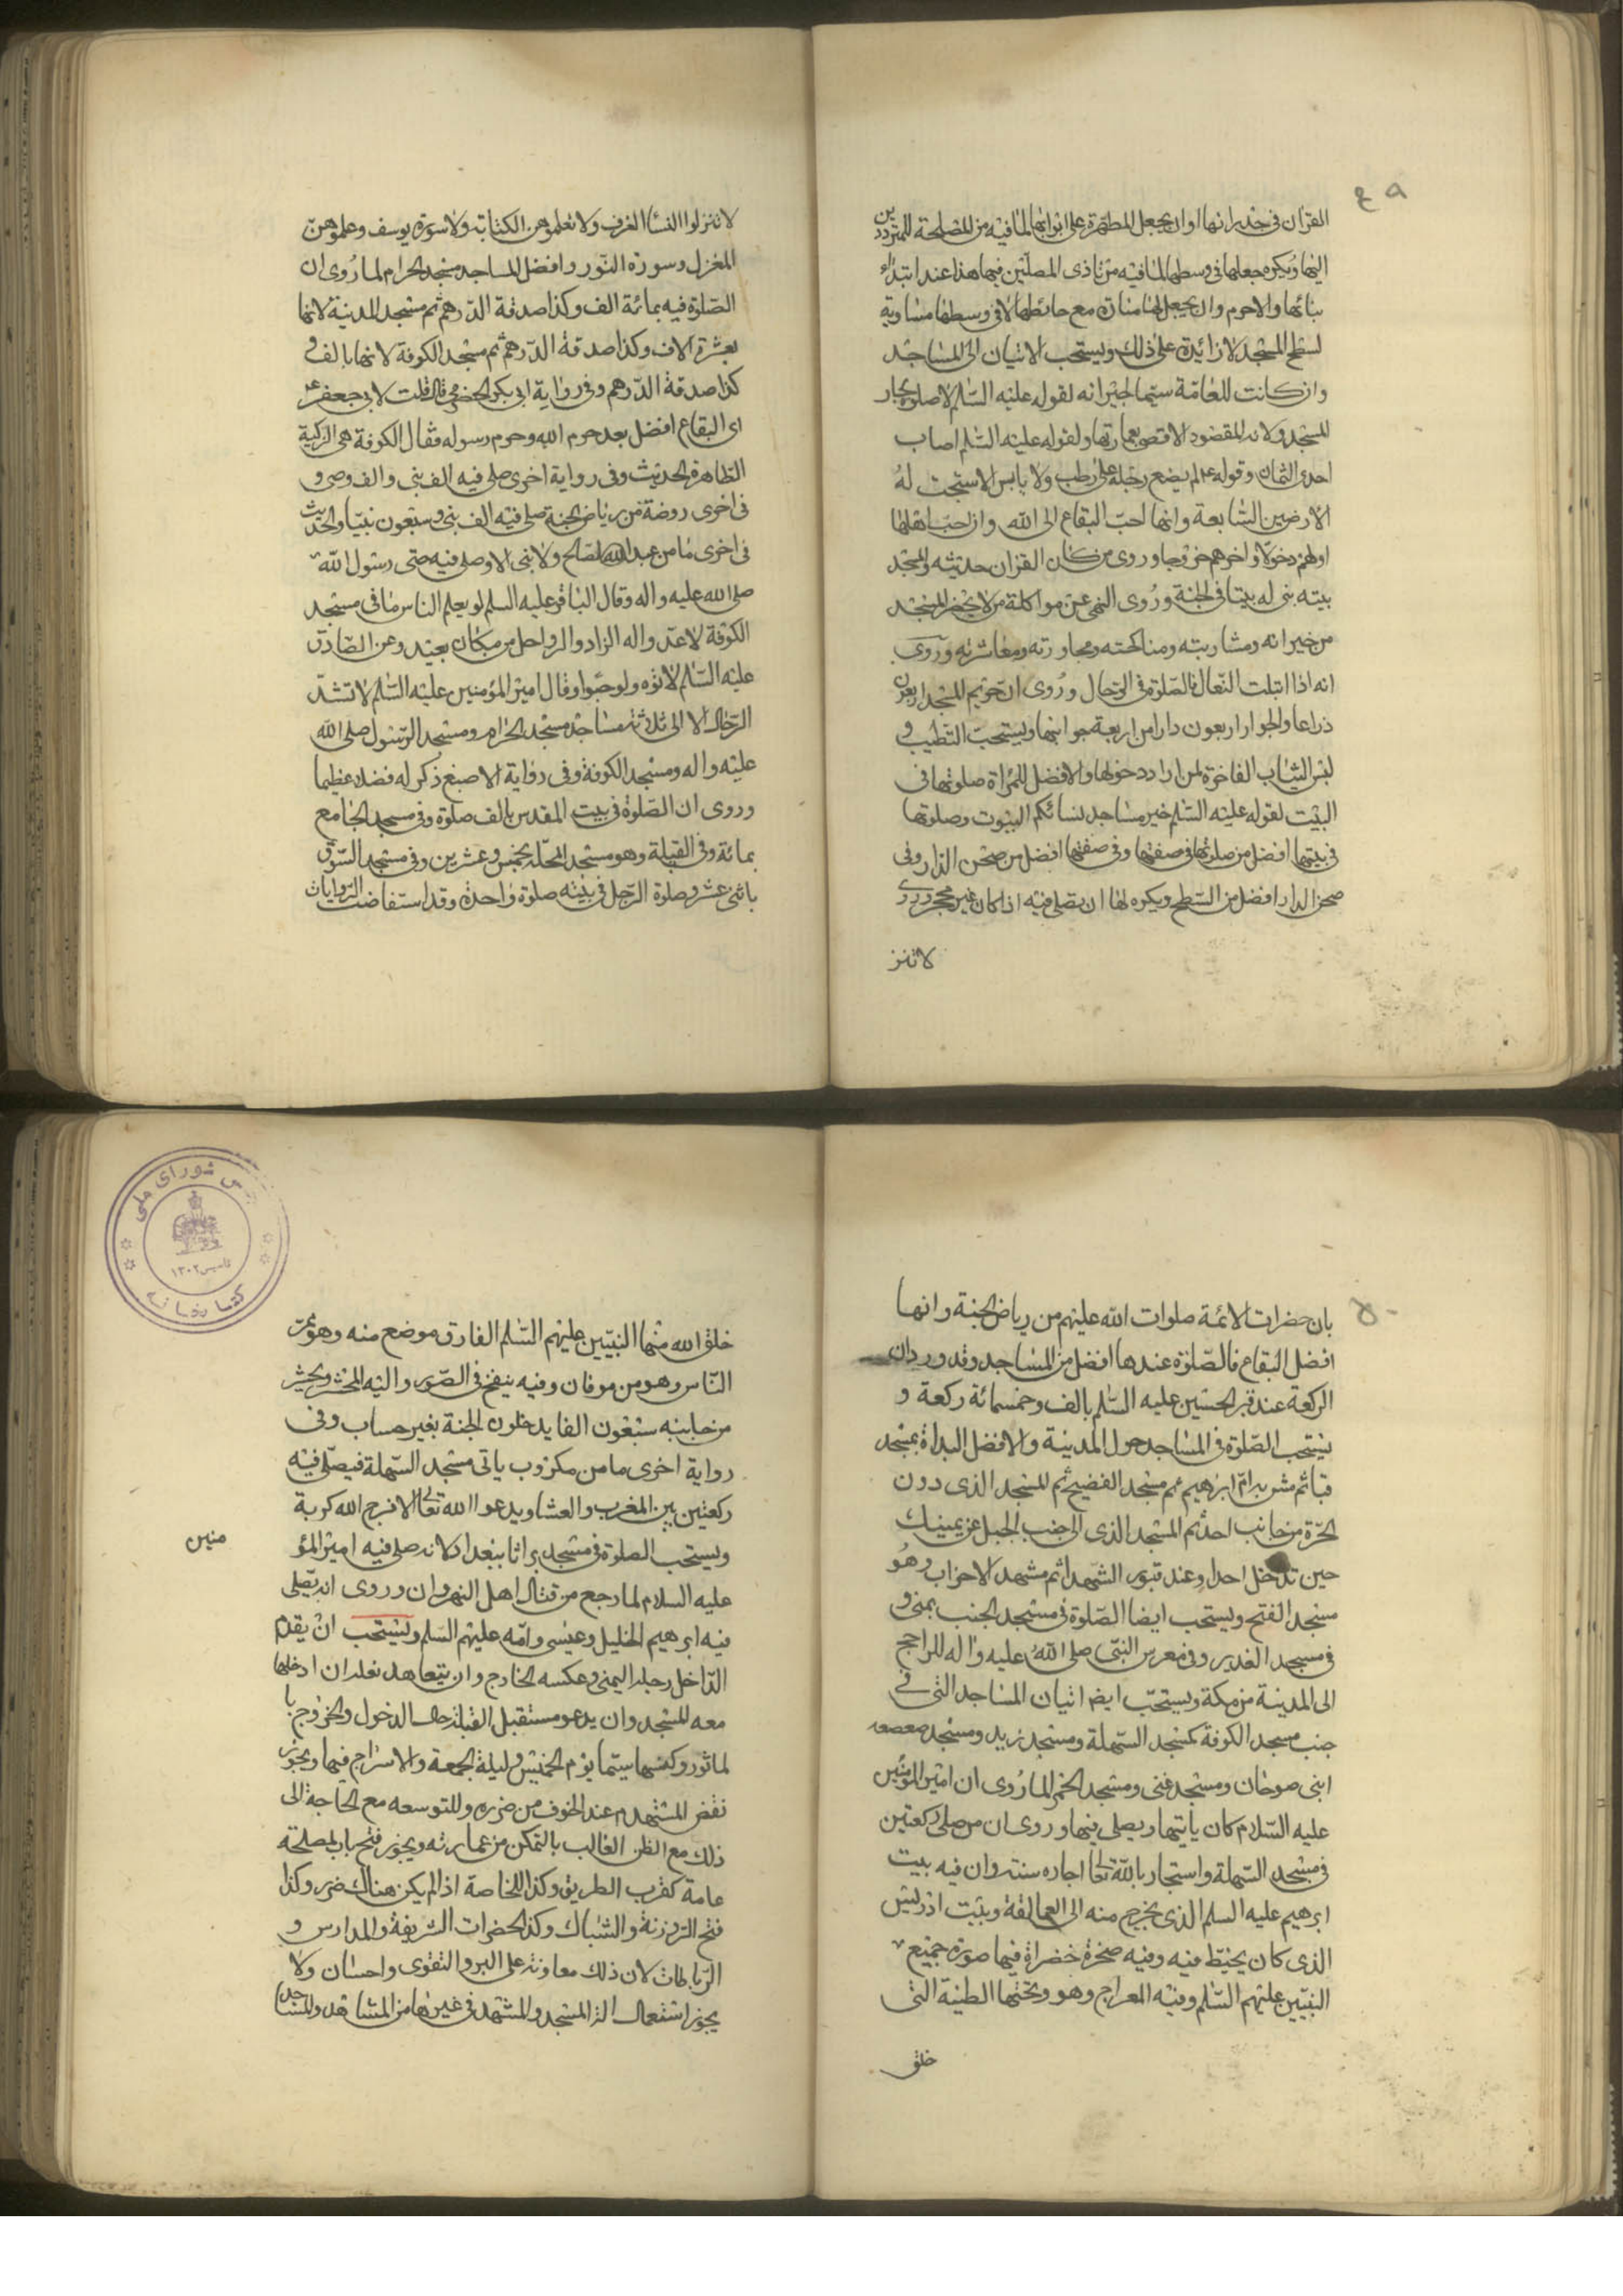 ٤٩
القران فى جدرانها او ان يجعل المطهرة على ابوابها لما فيه من المصلحة للمترددين
اليها ويكره جعلها فى وسطها لما فيه من تاذى المصلين فيها هذا عند ابتداء
بنائها والا حرم وان يجعل لها منارة مع حائطها لا فى وسطها مساوية
لسطح المسجد لا زائدة على ذلك ويستحب الاتيان الى المساجد
وان كانت للعامة سيما لجيرانه لقوله عليه السلم لا صلوة لجار
المسجد ولانه المقصود الاقصى بعمارتها ولقوله عليه السلم اصاب
احدى الثمان وقوله عم لم يضع رجله على رطب ولا يابس الا سبحت له
الارضين السابعة وانها احب البقاع الى الله وان احب اهلها
اولهم دخولا واخرهم خروجا وروى من كان القران حديثه والمسجد
بيته بنى له بيتا فى الجنة وروى النهى عن مواكلة من لا يحضر المسجد
من جيرانه ومشاربته ومناكحته ومجاورته ومعاشرته وروى
انه اذا ابتلت النعال فالصلوة فى الرحال وروى ان حريم المسجد اربعون
ذراعا والجوار اربعون دارا من اربعة جوانبها ويستحب التطيب و
لبس الثياب الفاخرة لمن اراد دخولها والافضل للمراة صلوتها فى
البيت لقوله عليه السلم خير مساجد نسائكم البيوت وصلوتها
فى بيتها افضل من صلوتها فى صفتها وفى صفتها افضل من صحن الدار وفى
صحن الدار افضل من السطح ويكره لها ان تصلى فيه اذا كان غير محجر وروى
لا تنز
لا تنزلوا النسا الغرف ولا تعلموهن الكتابة ولا سورة يوسف وعلموهن
المغزل وسورة النور وافضل المساجد مسجد الحرام لما روى ان
الصلوة فيه بمائة الف وكذا صدقة الدرهم ثم مسجد المدينة لانها
بعشرة الاف وكذا صدقة الدرهم ثم مسجد الكوفة لانها بالف و
كذا صدقة الدرهم وفى رواية ابى بكر الحضرمى قال قلت لابى جعفر عم
اى البقاع افضل بعد حرم الله وحرم رسوله فقال الكوفة هى الزكية
الطاهرة الحديث وفى رواية اخرى صلى فيه الف نبى والف وصى و
فى اخرى روضة من رياض الجنة صلى فيه الف نبى وسبعون نبيا والحديث
فى اخرى ما من عبد الله صالح ولا نبى الا وصلى فيه حتى رسول الله
صلى الله عليه واله وقال الباقر عليه السلم لو يعلم الناس ما فى مسجد
الكوفة لاعدوا له الزاد والرواحل من مكان بعيد وعن الصادق
عليه السلم لاتوه ولو حبوا وقال امير المؤمنين عليه السلم لا تشد
الرحال الا الى ثلاثة مساجد مسجد الحرام ومسجد الرسول صلى الله
عليه واله ومسجد الكوفة وفى رواية الاصبغ ذكر له فضلا عظيما
وروى ان الصلوة فى بيت المقدس بالف صلوة وفى مسجد الجامع
بمائة وفى القبيلة وهو مسجد المحلة بخمس وعشرين وفى مسجد السوق
باثنى عشر وصلوة الرجل فى بيته صلوة واحدة وقد استفاضت الروايات
٥٠
بان حضرات الائمة صلوات الله عليهم من رياض الجنة وانها
افضل البقاع فالصلوة عندها افضل من المساجد وقد ورد ان
الركعة عند قبر الحسين عليه السلم بالف وخمسمائة ركعة و
يستحب الصلوة فى المساجد حول المدينة والافضل البداة بمسجد
قبا ثم مشربة ام ابرهيم ثم مسجد الفضيح ثم المسجد الذى دون
الحرة من جانب احد ثم المسجد الذى الى جنب الجبل عن يمينك
حين تدخل احدا وعند قبور الشهدا ثم مشهد الاحزاب وهو
مسجد الفتح ويستحب ايضا الصلوة فى مسجد الخيف بمنى و
فى مسجد الغدير وفى معرس النبى صلى الله عليه واله للراجح
الى المدينة من مكة ويستحب ايضا اتيان المساجد التى فى
جنب مسجد الكوفة كمسجد السهلة ومسجد زيد ومسجد صعصعه
ابنى صوحان ومسجد غنى ومسجد الحمرا لما روى ان امير المؤمنين
عليه السلام كان ياتيها ويصلى فيها وروى ان من صلى ركعتين
فى مسجد السهلة واستجار بالله تعا اجاره سنته وان فيه بيت
ابرهيم عليه السلم الذى يخرج منه الى العمالقة وبيت ادريس
الذى كان يخيط فيه وفيه صخرة خضراة فيها صورة جميع
النبيين عليهم السلم وفيه المعراج وهو وتحتها الطينة التى
خلق
مجلس شوراى ملى
تاسيس ١٣٠٢
كتابخانه
خلق الله منها النبيين عليهم السلم الفارق موضع منه وهو ممر
الناس وهو من موفان وفيه ينفخ فى الصور واليه المحشر ويحشر
من جانبه سبعون الفا يدخلون الجنة بغير حساب وفى
رواية اخرى ما من مكروب ياتى مسجد السهلة فيصلى فيه
ركعتين بين المغرب والعشا ويدعوا الله تعالى الا فرج الله كربة
ويستحب الصلوة فى مسجد براثا ببغداد لانه صلى فيه امير المؤ
منين
عليه السلام لما رجع من قتال اهل النهروان وروى انه يصلى
فيه ابرهيم الخليل وعيسى وامه عليهم السلم ويستحب ان يقدم
الداخل رجله اليمنى وعكسه الخارج وان يتعاهد نعله ان ادخلها
معه المسجد وان يدعو مستقبل القبلة حال الدخول والخروج با
لماثور وكنسها سيما يوم الخميس وليلة الجمعة والاسراج فيها ويجوز
نقض المستهدم عند الخوف من ضرره وللتوسعه مع الحاجة الى
ذلك مع الظن الغالب بالتمكن من عمارته ويجوز فتح باب لمصلحة
عامة كقرب الطريق وكذا للخاصة اذا لم يكن هناك ضرر وكذا
فتح الروزنة والشباك وكذا الحضرات الشريفة والمدارس و
الرباطات لان ذلك معاونة على البر والتقوى واحسان ولا
يجوز استعمال الة المسجد والمشهد فى غيرها من المشاهد والمساجد